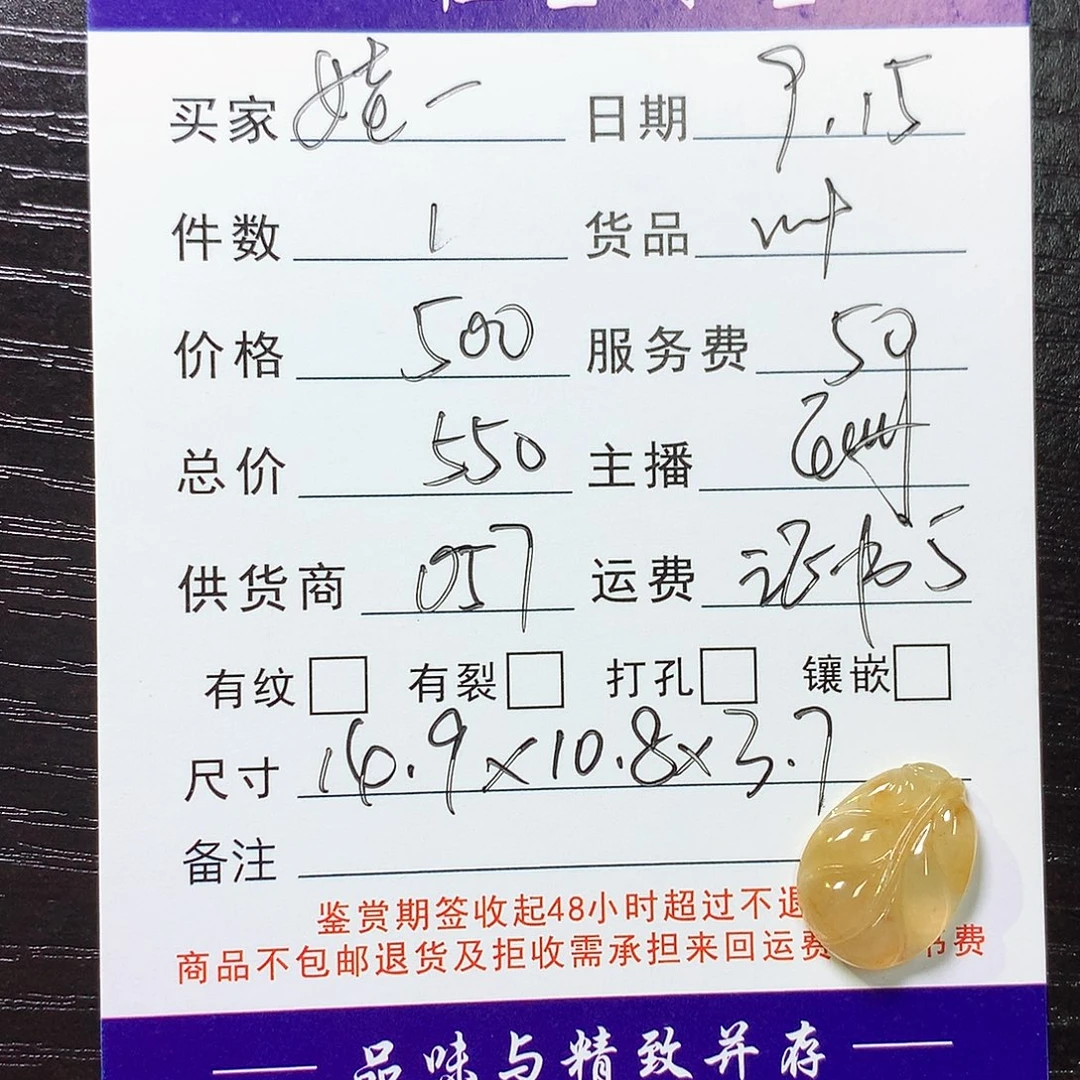 买家 娃一 日期 9.15
件数 1 货品 叶
价格 500 服务费 50
总价 550 主播
供货商 057 运费 证书5
有纹 有裂 打孔 镶嵌
尺寸 16.9×10.8×3.7
备注
鉴赏期签收起48小时超过不退
商品不包邮退货及拒收需承担来回运费 书费
品味与精致并存